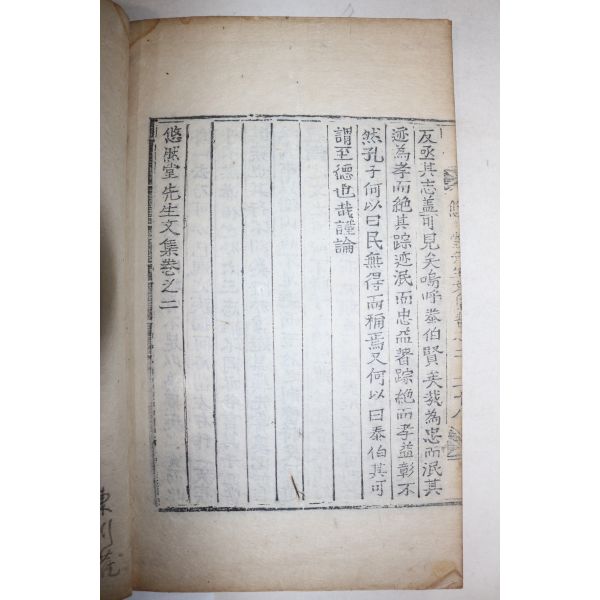 反丞其志盖可見矣嗚呼泰伯賢矣哉為忠而泯其
迹為孝而絶其踪迹泯而忠益著踪絶而孝益彰不
然孔子何以曰民無得而稱焉又何以曰泰伯其可
謂至德也哉謹論
悠然堂先生文集卷之二